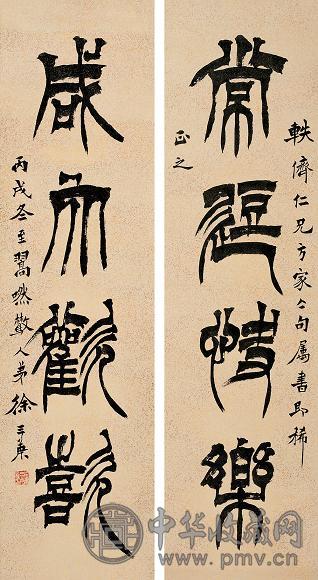 軼儕仁兄方家亼句屬書即稀
常快樂
正之
咸大歡喜
丙戌冬至翯然散人弟徐三庚
中华收藏网
www.pmv.cn